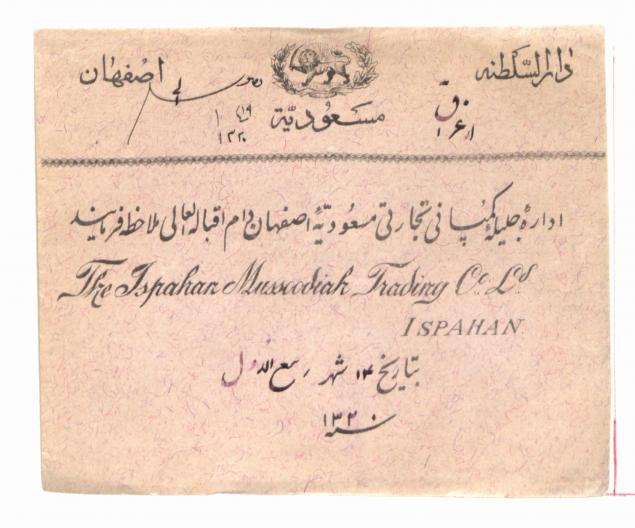 دارالسلطنه اصفهان
مسعودیّة
ق
۱۳۲۰
ادارهٔ جلیلهٔ کمپانی تجارتی مسعودیّهٔ اصفهان دام اقباله العالی ملاحظه فرمایند
The Ispahan Mussoodiah Trading Co. Ld.
ISPAHAN
بتاریخ ۱۴ شهر ربیع الاول
سنه ۱۳۲۰